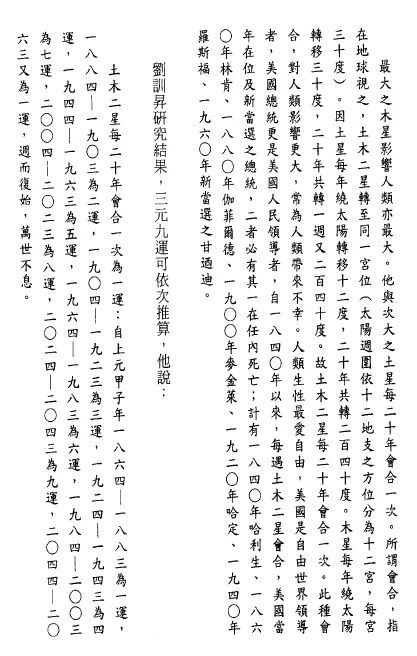 最大之木星影響人類亦最大。他與次大之土星每二十年會合一次。所謂會合，指
在地球視之，土木二星轉至同一宮位（太陽週圍依十二地支之方位分為十二宮，每宮
三十度）。因土星每年繞太陽轉移十二度，二十年共轉二百四十度。木星每年繞太陽
轉移三十度，二十年共轉一週又二百四十度。故土木二星每二十年會合一次。此種會
合，對人類影響更大，常為人類帶來不幸。人類生性最愛自由，美國是自由世界領導
者，美國總統更是美國人民領導者，自一八四〇年以來，每遇土木二星會合，美國當
年在位及新當選之總統，二者必有其一在任內死亡；計有一八四〇年哈利生、一八六
〇年林肯、一八八〇年伽菲爾德、一九〇〇年麥金萊、一九二〇年哈定、一九四〇年
羅斯福、一九六〇年新當選之甘迺迪。
劉訓昇研究結果，三元九運可依次推算，他說：
土木二星每二十年會合一次為一運：自上元甲子年一八六四—一八八三為一運，
一八八四—一九〇三為二運，一九〇四—一九二三為三運，一九二四—一九四三為四
運，一九四四—一九六三為五運，一九六四—一九八三為六運，一九八四—二〇〇三
為七運，二〇〇四—二〇二三為八運，二〇二四—二〇四三為九運，二〇四四—二〇
六三又為一運，週而復始，萬世不息。